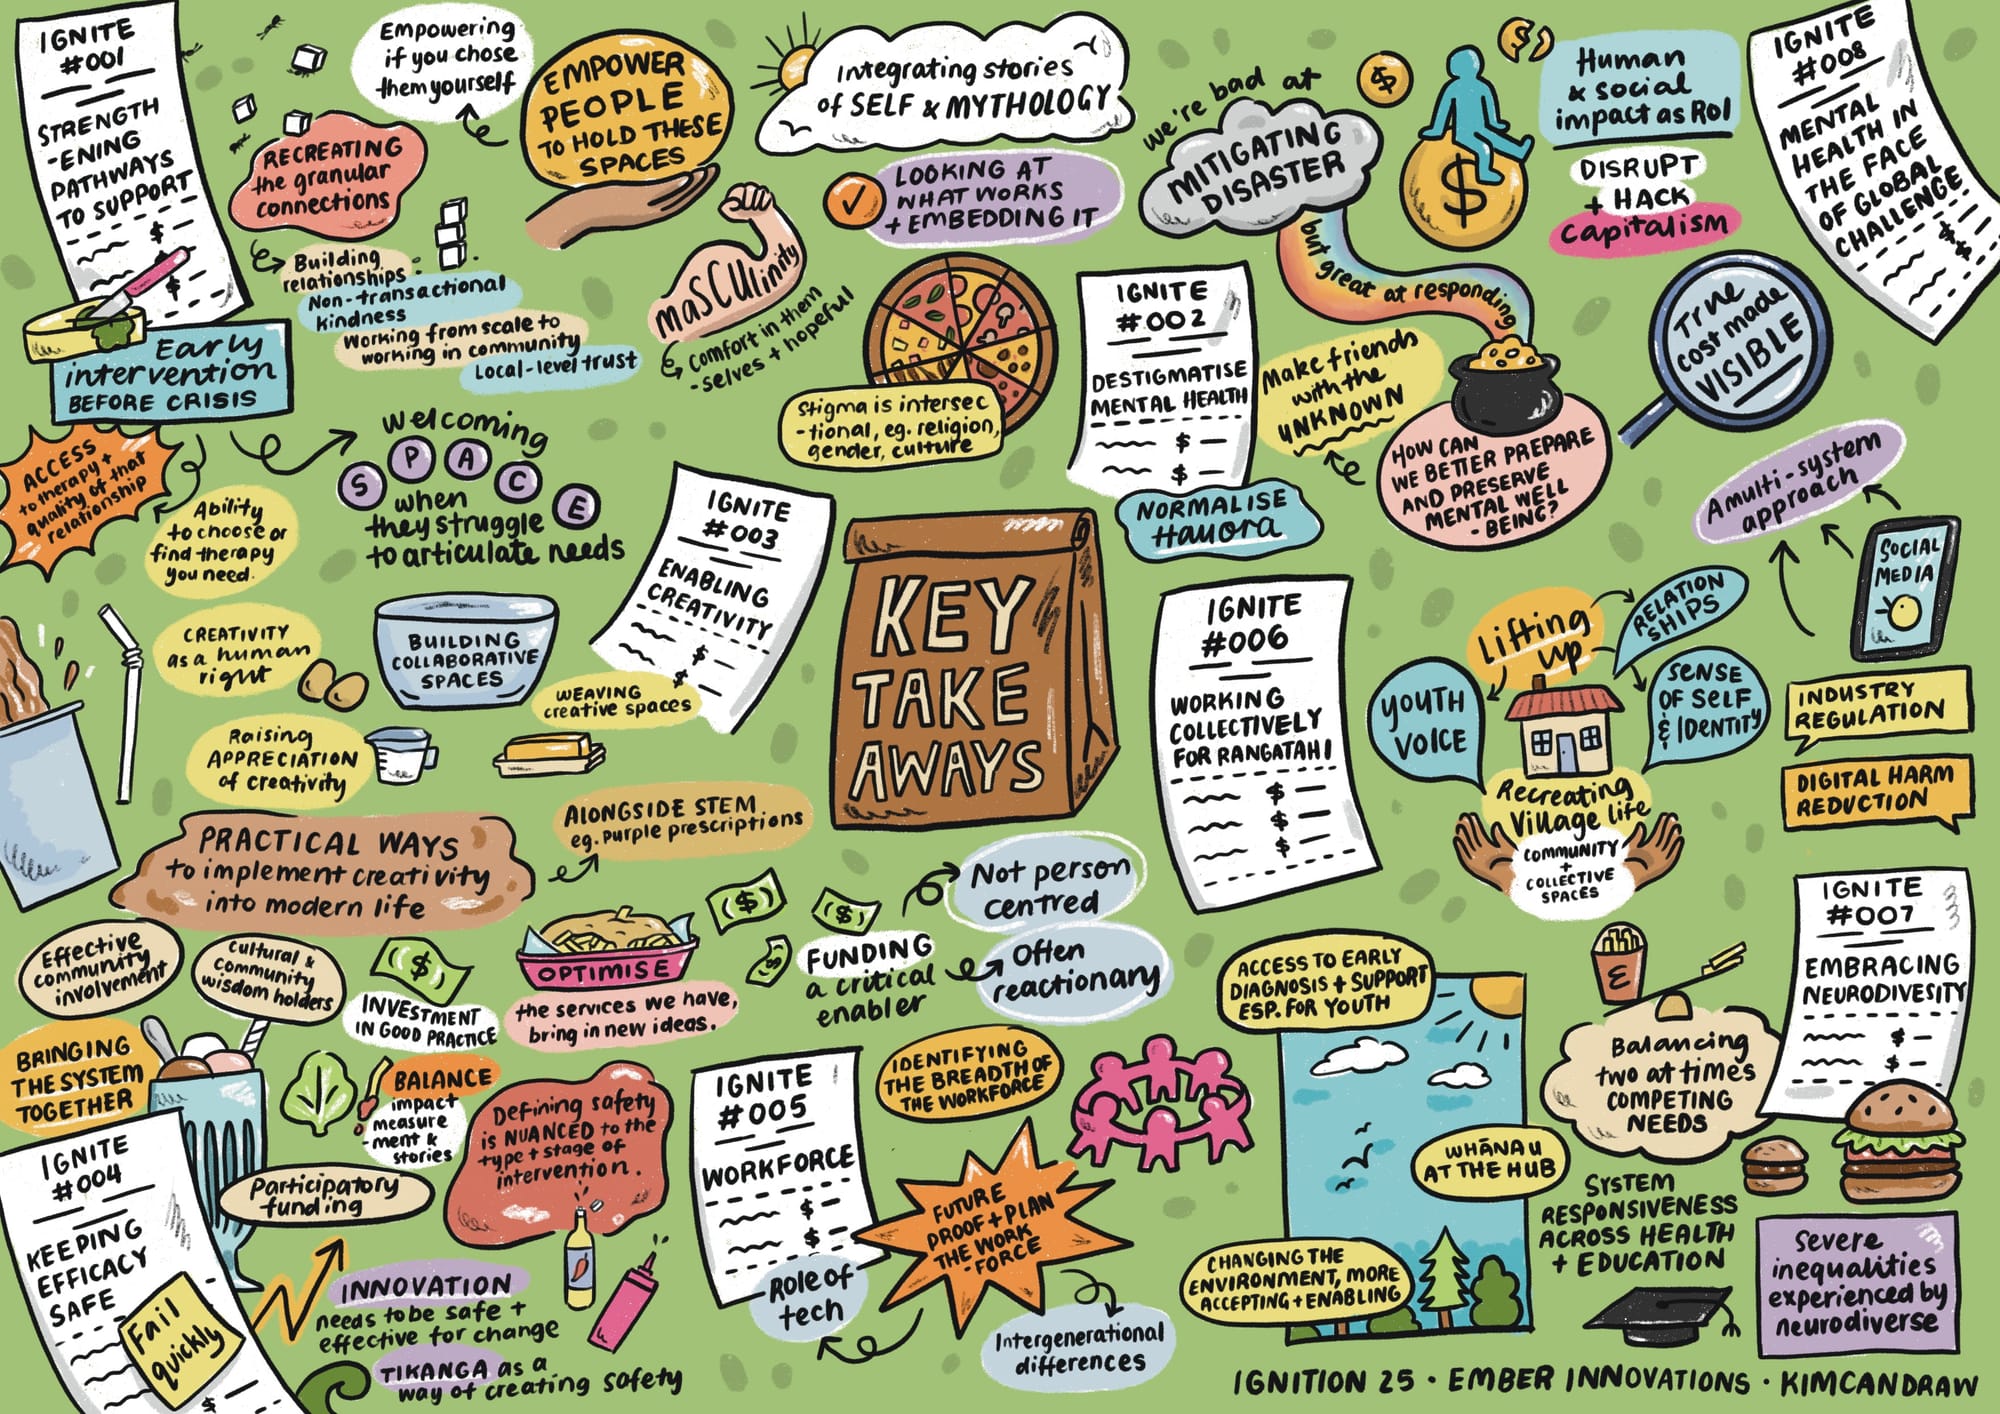 IGNITE
#001
STRENGTH
-ENING
PATHWAYS
TO SUPPORT
$
$
Early
intervention
BEFORE CRISIS
ACCESS
to therapy +
quality of that
relationship
Ability
to choose or
find therapy
you need.
RECREATING
the granular
connections
Building
relationships
Non-transactional
kindness
Working from scale to
working in community
Local-level trust
welcoming
SPACE
when
they struggle
to articulate needs
Empowering
if you chose
them yourself
EMPOWER
PEOPLE
TO HOLD THESE
SPACES
Integrating stories
of SELF & MYTHOLOGY
LOOKING AT
WHAT WORKS
+ EMBEDDING IT
maSCUlinity
comfort in them
-selves + hopeful
Stigma is intersec
-tional, eg. religion,
gender, culture
IGNITE
#002
DESTIGMATISE
MENTAL HEALTH
$
$
NORMALISE
Hauora
we're bad at
MITIGATING
DISASTER
but great at responding
$
$
$
Human
& social
impact as RoI
DISRUPT
+ HACK
capitalism
IGNITE
#008
MENTAL
HEALTH IN
THE FACE
OF GLOBAL
CHALLENGE
$
$
True
cost made
VISIBLE
Make friends
with the
UNKNOWN
HOW CAN
WE BETTER PREPARE
AND PRESERVE
MENTAL WELL
-BEING?
A multi-system
approach
SOCIAL
MEDIA
INDUSTRY
REGULATION
DIGITAL HARM
REDUCTION
IGNITE
#003
ENABLING
CREATIVITY
$
$
CREATIVITY
as a human
right
BUILDING
COLLABORATIVE
SPACES
WEAVING
creative spaces
Raising
APPRECIATION
of creativity
PRACTICAL WAYS
to implement creativity
into modern life
ALONGSIDE STEM
eg. purple prescriptions
KEY
TAKE
AWAYS
IGNITE
#006
WORKING
COLLECTIVELY
FOR RANGATAHI
$
$
$
Lifting
up
RELATION
SHIPS
YOUTH
VOICE
SENSE
OF SELF
& IDENTITY
Recreating
Village life
COMMUNITY
+
COLLECTIVE
SPACES
Effective
community
involvement
Cultural &
Community
wisdom holders
$
INVESTMENT
IN GOOD PRACTICE
OPTIMISE
the services we have,
bring in new ideas.
$
$
$
FUNDING
a critical
enabler
Not person
centred
Often
reactionary
BRINGING
THE SYSTEM
TOGETHER
BALANCE
impact
measure
-ment &
stories
Participatory
funding
Defining safety
is NUANCED to the
type + stage of
intervention.
IGNITE
#004
KEEPING
EFFICACY
SAFE
$
Fail
quickly
INNOVATION
needs to be safe +
effective for change
TIKANGA as a
way of creating safety
IGNITE
#005
WORKFORCE
$
$
Role of
tech
IDENTIFYING
THE BREADTH OF
THE WORKFORCE
FUTURE
PROOF + PLAN
THE WORK
-FORCE
Intergenerational
differences
ACCESS TO EARLY
DIAGNOSIS + SUPPORT
ESP. FOR YOUTH
WHĀNAU
AT THE HUB
CHANGING THE
ENVIRONMENT, MORE
ACCEPTING + ENABLING
IGNITE
#007
EMBRACING
NEURODIVESITY
$
$
Balancing
two at times
COMPETING
NEEDS
SYSTEM
RESPONSIVENESS
ACROSS HEALTH
+ EDUCATION
Severe
inequalities
experienced by
neurodiverse
IGNITION 25 · EMBER INNOVATIONS · KIMCANDRAW